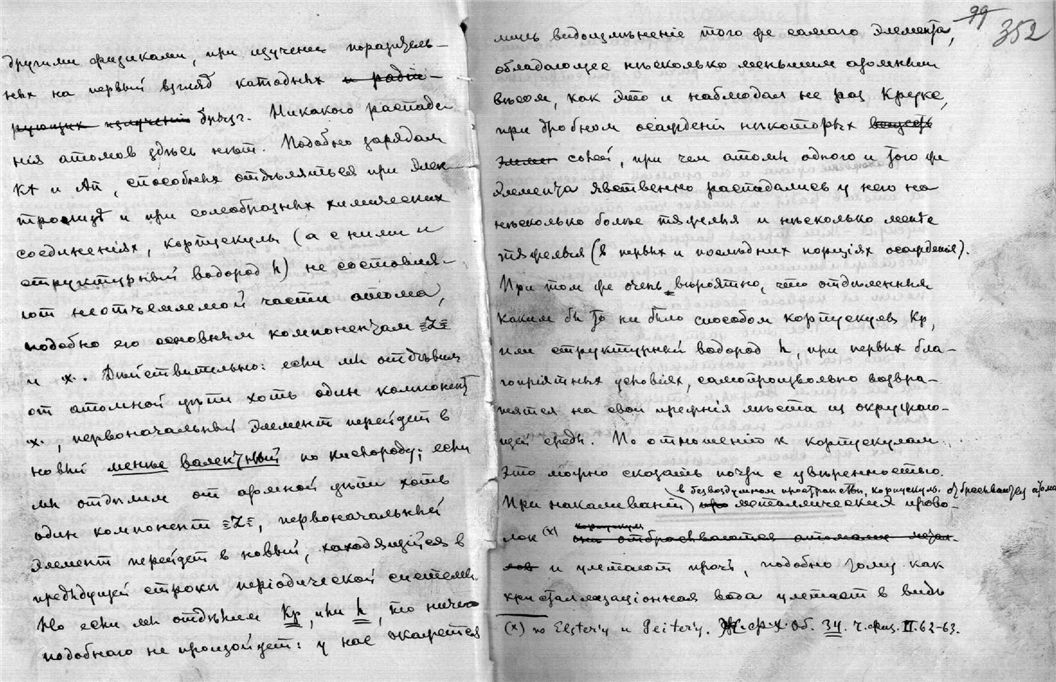 другими физиками, при изучении поразитель-
ных на первый взгляд катодных и радіи-
рующих излученій Брукса. Никакого распаде
нія атомов здѣсь нѣт. Подобно зарядам
Kt и An, способных отдѣляться при элек-
тролизѣ и при солеобразных химических
соединеніях, корпускулы (а с ними и
структурный водород h) не составля-
ют неотъемлемой части атома,
подобно его основным компонентам ≡Z≡
и x. Дѣйствительно: если мы отдѣлим
от атомной цѣпи хоть один компонент
x, первоначальный элемент перейдет в
новый менѣе валентный по кислороду; если
мы отдѣлим от атомной цѣпи хоть
один компонент ≡Z≡, первоначальный
элемент перейдет в новый, находящійся в
предъидущей строкѣ періодической системы.
Но если мы отдѣлим Kp, или h, то ничего
подобного не произойдет: у нас окажется
99
352
лишь видоизмѣненіе того же самаго элемента,
обладающее нѣсколько меньшим атомным
вѣсом, как это и наблюдал не раз Крукс,
при дробном осажденіи нѣкоторых веществ
элемен солей, при чем атомы одного и того же
элемента явственно распадались у него на
нѣсколько болѣе тяжелыя и нѣсколько менѣе
тяжелыя (в первых и послѣдних порціях осажденія).
При том же очень вѣроятно, что отдѣленныя
каким бы то ни было способом корпускулы Kp,
или структурный водород h, при первых бла-
гопріятных условіях, самопроизвольно возвра-
щаются на свои прежнія мѣста из окружаю-
щей среды. По отношенію к корпускулам
это можно сказать почти с увѣренностью.
в безвоздушном пространствѣ, корпускулы отбрасываются атома
При накаливаніи про металлических прово-
корпускулы
лок (x) они отбрасываются атомами метал-
лов и улетают прочь, подобно тому как
кристаллизаціонная вода улетает в видѣ
(x) по Elster'у и Geitel'ю. Ж.Ф.Х. Об. 34. ч. физ. II. 62-63.